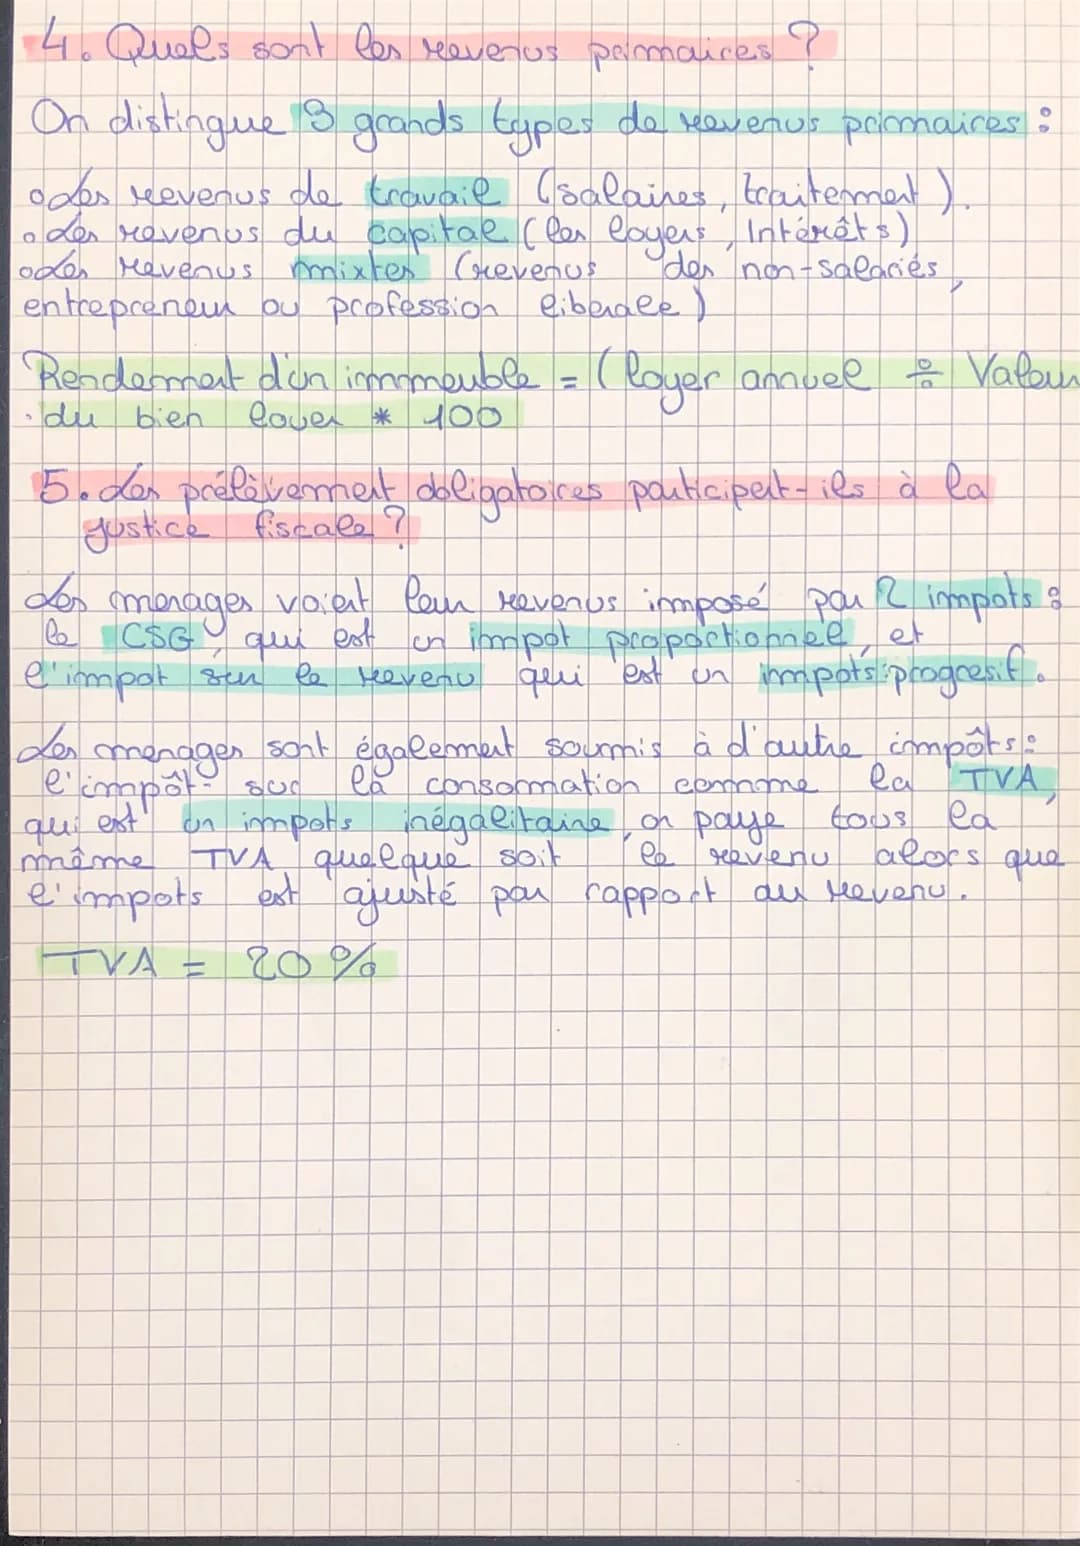 4. Quels sont les revenus primaires ?
On distingue 3 grands types de revenus primaires :
o des revenus de travail (salaires, traitement).
o des revenus du capital (les loyers, Intérêts)
o des revenus mixtes (revenus des non-salariés,
entrepreneur ou profession liberale)
Rendement d'un immmeuble = (loyer annuel ÷ Valeur
du bien louer * 100
5. Les prélèvement obligatoires participent-ils à la
justice fiscale ?
Les menages voient leur revenus imposé par 2 impots :
la CSG, qui est un impot proportionnel, et
l'impot sur le revenu qui est un impots progresif.
Les menages sont également soumis à d'autre impôts :
l'impôt sur la consommation comme la TVA,
qui est un impots inégalitaire, on paye tous la
même TVA quelque soit le revenu alors que
l'impots est ajusté par rapport au revenu.
TVA = 20 %